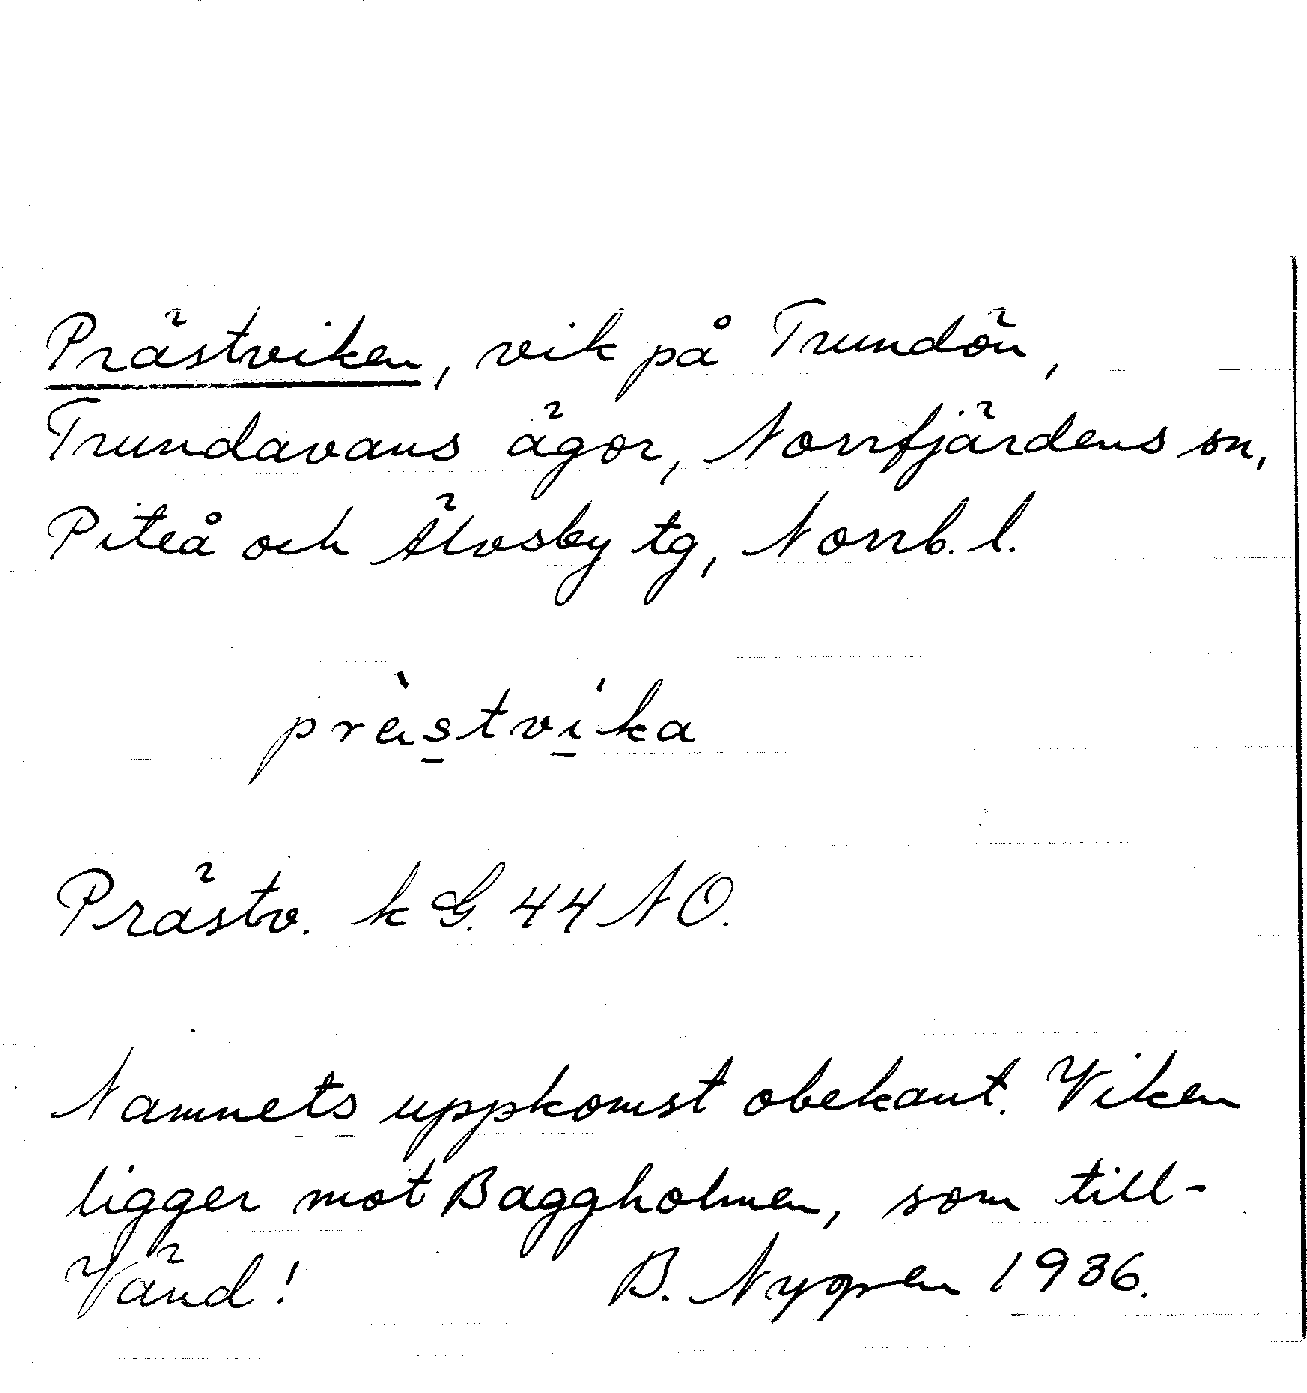 Prästviken, vik på Trundön,
Trundavans ägor, Norrfjärdens sn,
Piteå och Älvsby tg, Norrb. l.
prèstvíka
Prästv. k G. 44 NO.
Namnets uppkomst obekant. Viken
ligger mot Baggholmen, som till-
Vänd! B. Nygren 1936.